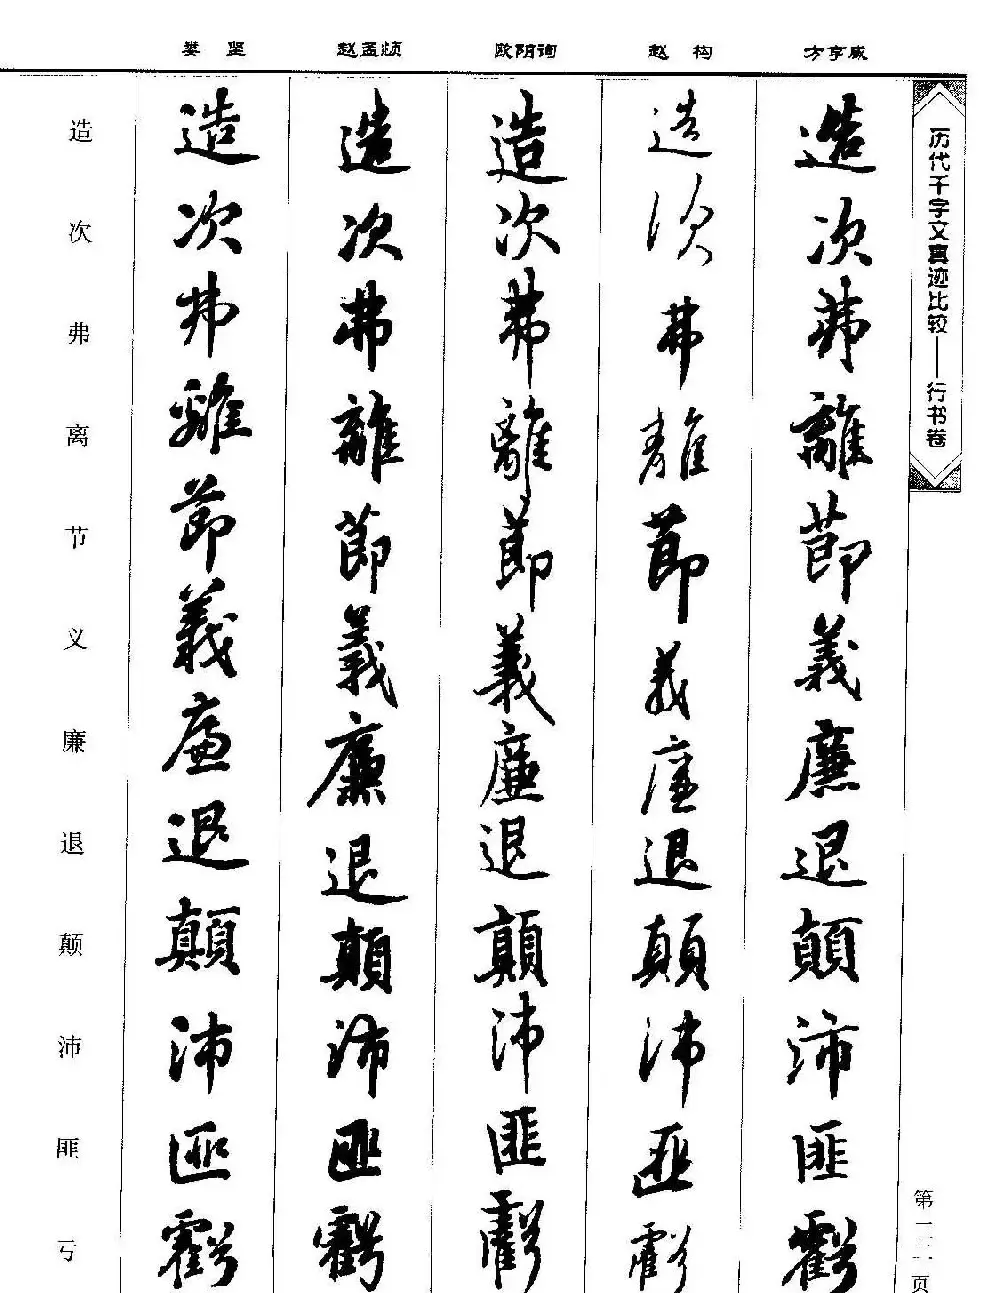 娄坚 赵孟頫 欧阳询 赵构 方亨咸
历代千字文真迹比较——行书卷
造次弗離節義廉退顛沛匪虧
造次弗離節義廉退顛沛匪虧
造次弗離節義廉退顛沛匪虧
造次弗離節義廉退顛沛匪虧
造次弗離節義廉退顛沛匪虧
造次弗离节义廉退颠沛匪亏
第一一页